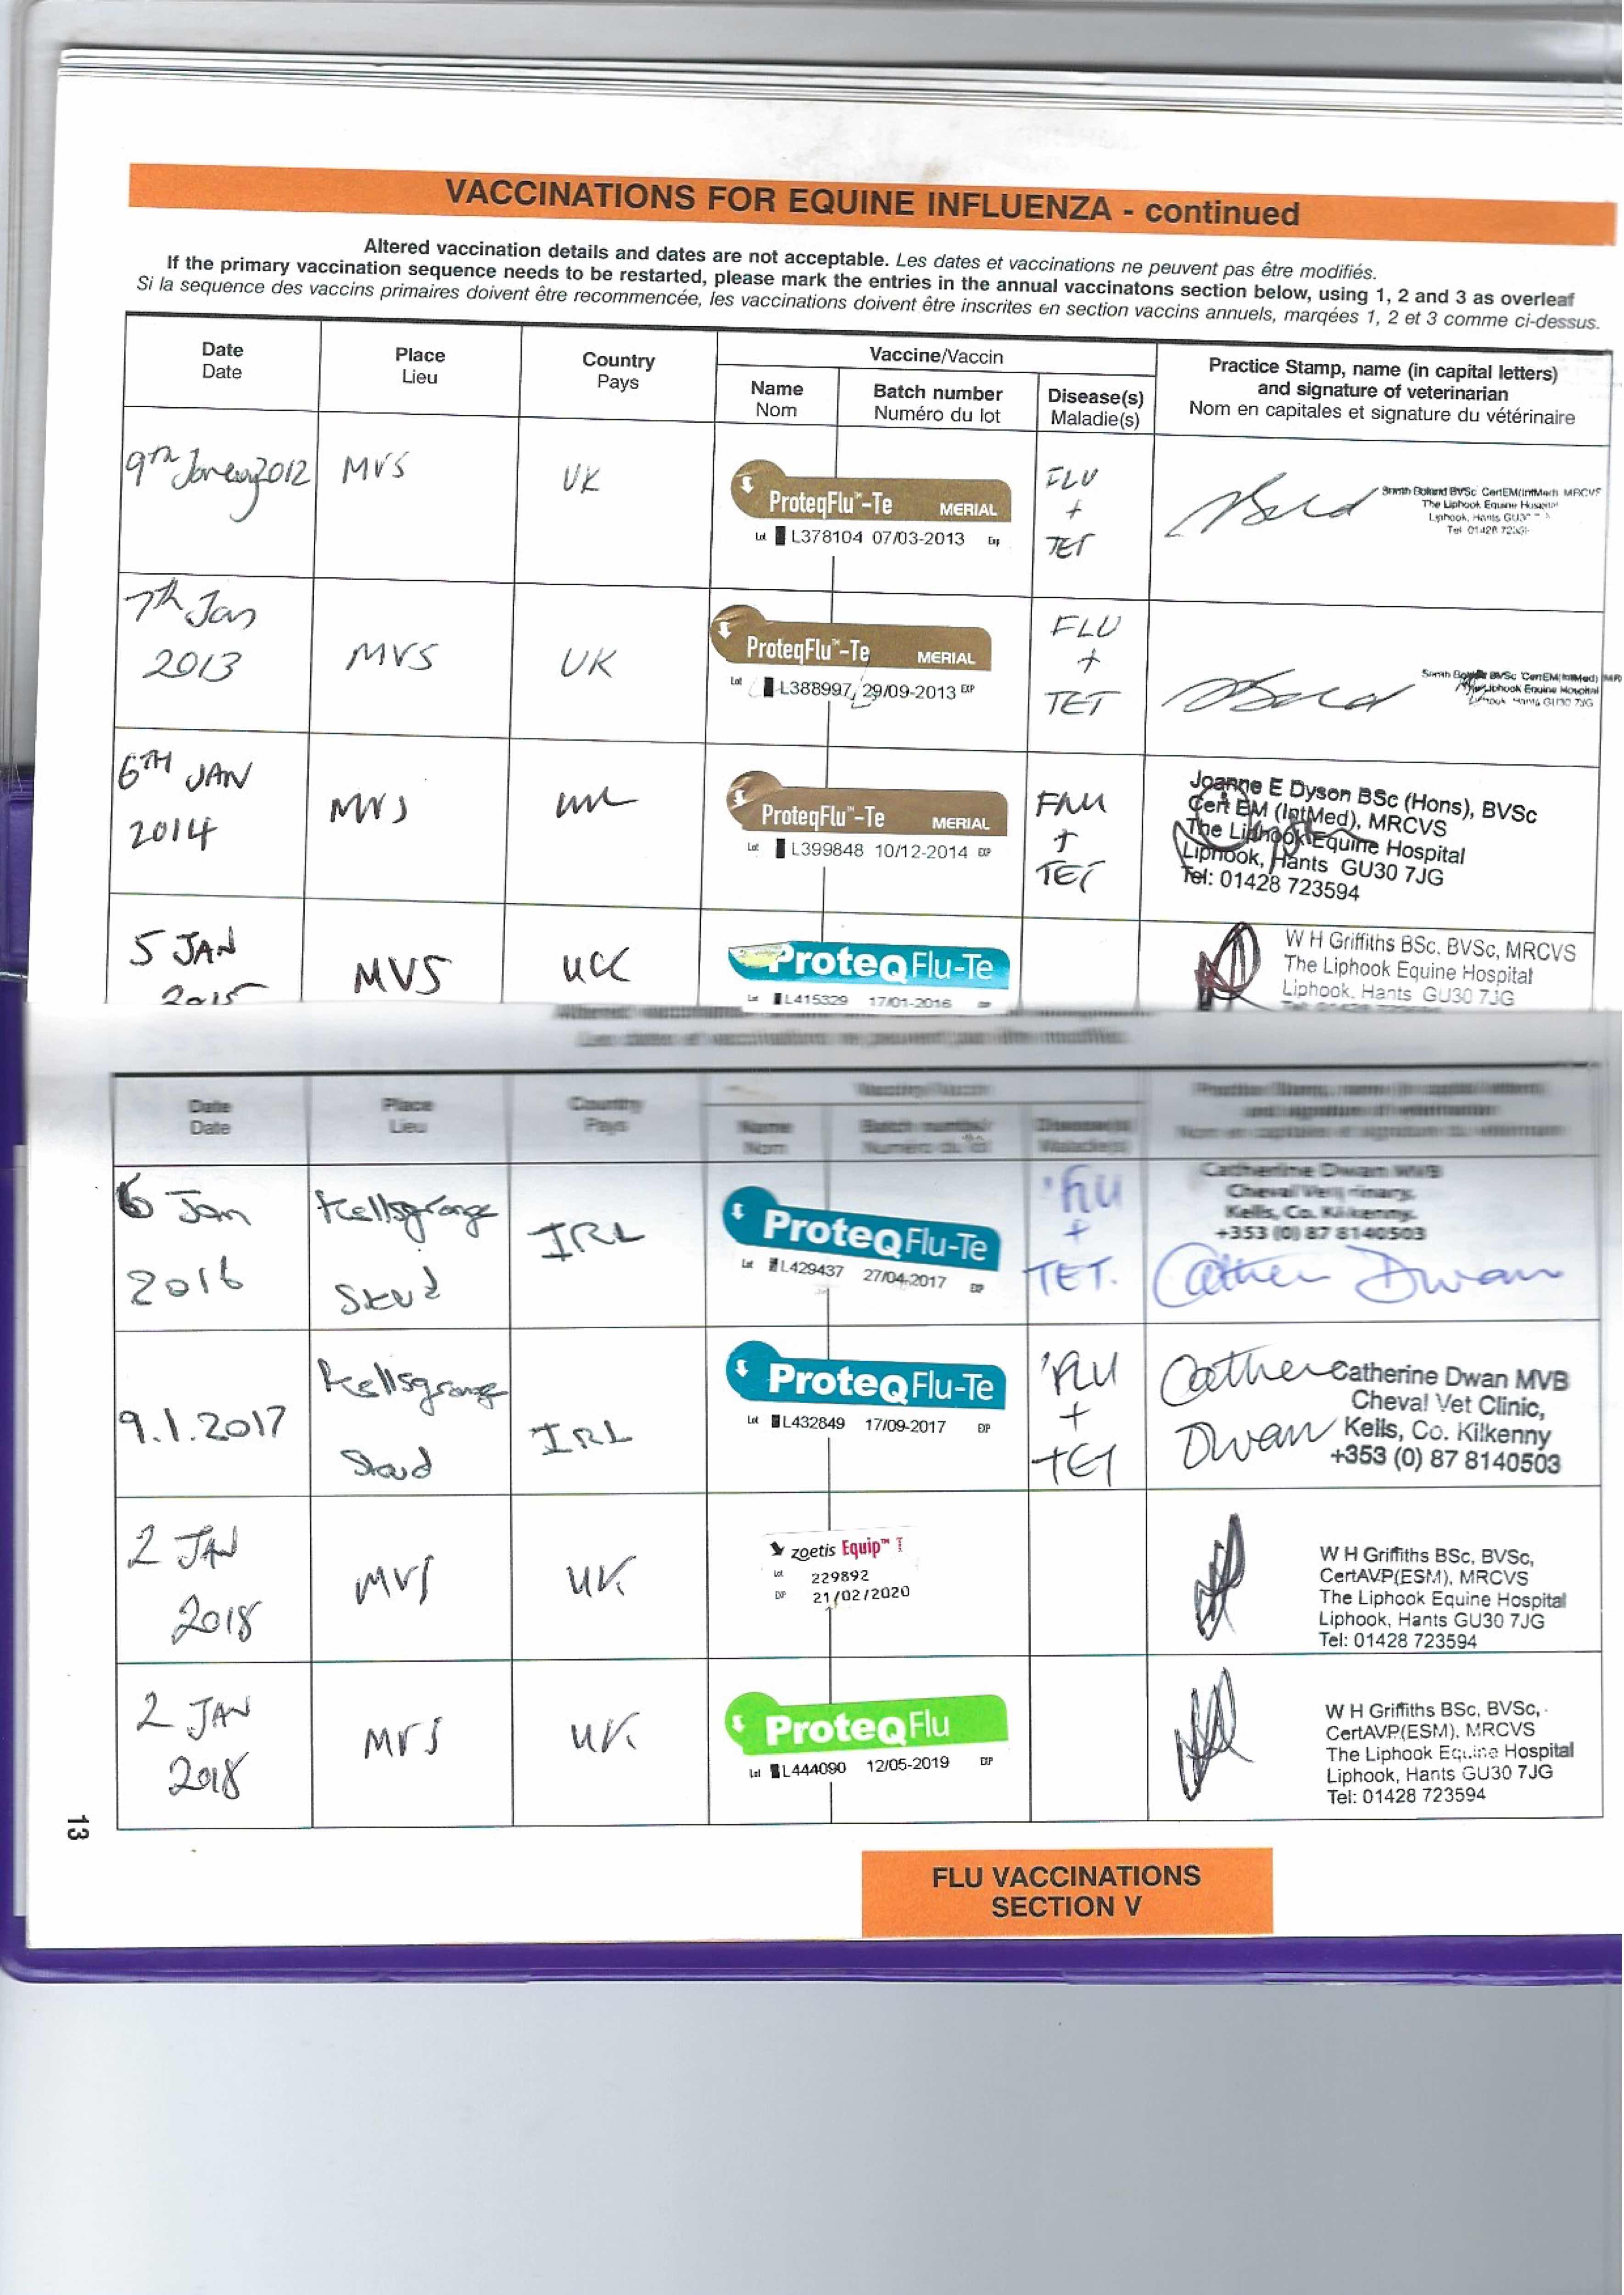 VACCINATIONS FOR EQUINE INFLUENZA - continued
Altered vaccination details and dates are not acceptable. Les dates et vaccinations ne peuvent pas être modifiés.
If the primary vaccination sequence needs to be restarted, please mark the entries in the annual vaccinatons section below, using 1, 2 and 3 as overleaf
Si la sequence des vaccins primaires doivent être recommencée, les vaccinations doivent être inscrites en section vaccins annuels, marqées 1, 2 et 3 comme ci-dessus.
Date
Date
Place
Lieu
Country
Pays
Vaccine/Vaccin
Name
Nom
Batch number
Numéro du lot
Disease(s)
Maladie(s)
Practice Stamp, name (in capital letters)
and signature of veterinarian
Nom en capitales et signature du vétérinaire
9th 2012
MVS
UK
ProteqFlu™-Te MERIAL
Lot L378104 07/03-2013 Exp
FLU
+
TET
BVSc CertEM(IntMed) MRCVS
The Liphook Equine Hospital
Liphook, Hants
Tel 01428
7th Jan
2013
MVS
UK
ProteqFlu™-Te MERIAL
Lot L388997 29/09-2013 EXP
FLU
+
TET
BVSc CertEM(IntMed)
Liphook Equine Hospital
Hants GU30 7JG
6TH JAN
2014
MVS
UK
ProteqFlu™-Te MERIAL
Lot L399848 10/12-2014 EXP
FLU
+
TET
Joanne E Dyson BSc (Hons), BVSc
Cert EM (IntMed), MRCVS
The Liphook Equine Hospital
Liphook, Hants GU30 7JG
Tel: 01428 723594
5 JAN
2015
MVS
UK
ProteqFlu-Te
Lot L415329 17/01-2016 EXP
W H Griffiths BSc, BVSc, MRCVS
The Liphook Equine Hospital
Liphook, Hants GU30 7JG
Les dates et vaccinations ne peuvent pas être modifiés.
Date
Date
Place
Lieu
Country
Pays
Vaccine/Vaccin
Name
Nom
Batch number
Numéro du lot
Disease(s)
Maladie(s)
6 Jan
2016
Kellsgrange
Stud
IRL
ProteqFlu-Te
Lot L429437 27/04-2017 EXP
'Flu
+
TET.
Catherine Dwan MVB
Cheval Veterinary,
Kells, Co. Kilkenny.
+353 (0) 87 8140503
Catherine Dwan
9.1.2017
Kellsgrange
Stud
IRL
ProteqFlu-Te
Lot L432849 17/09-2017 EXP
'Flu
+
TET
Catherine
Dwan
Catherine Dwan MVB
Cheval Vet Clinic,
Kells, Co. Kilkenny
+353 (0) 87 8140503
2 JAN
2018
MVS
UK
zoetis Equip™ T
Lot 229892
EXP 21/02/2020
W H Griffiths BSc, BVSc,
CertAVP(ESM), MRCVS
The Liphook Equine Hospital
Liphook, Hants GU30 7JG
Tel: 01428 723594
2 JAN
2018
MVS
UK
ProteqFlu
Lot L444090 12/05-2019 EXP
W H Griffiths BSc, BVSc,
CertAVP(ESM), MRCVS
The Liphook Equine Hospital
Liphook, Hants GU30 7JG
Tel: 01428 723594
13
FLU VACCINATIONS
SECTION V